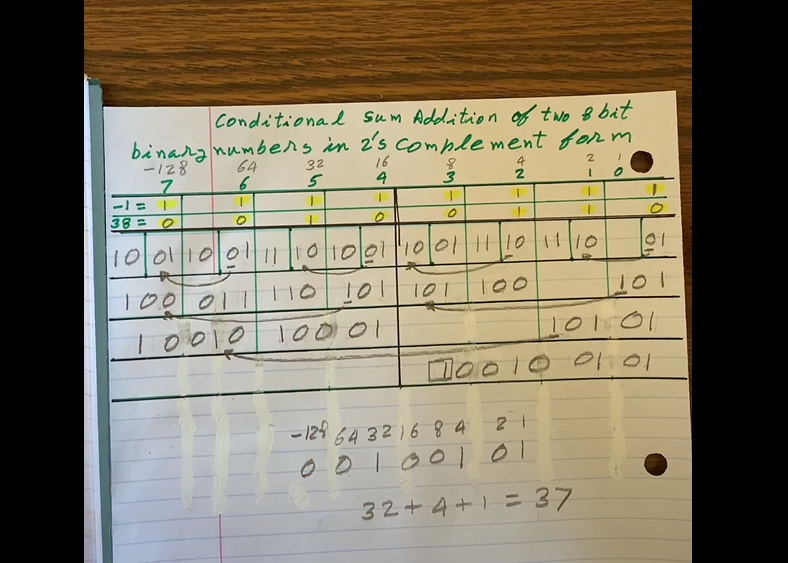 Conditional Sum Addition of two 8 bit
binary numbers in 2's complement form
-128 64 32 16 8 4 2 1
7 6 5 4 3 2 1 0
-1 = 1 1 1 1 1 1 1 1
38 = 0 0 1 0 0 1 1 0
10 01 10 01 11 10 10 01 10 01 11 10 11 10 01
100 011 110 101 101 100 101
10010 10001 101 01
1 0010 01 01
-128 64 32 16 8 4 2 1
0 0 1 0 0 1 0 1
32 + 4 + 1 = 37